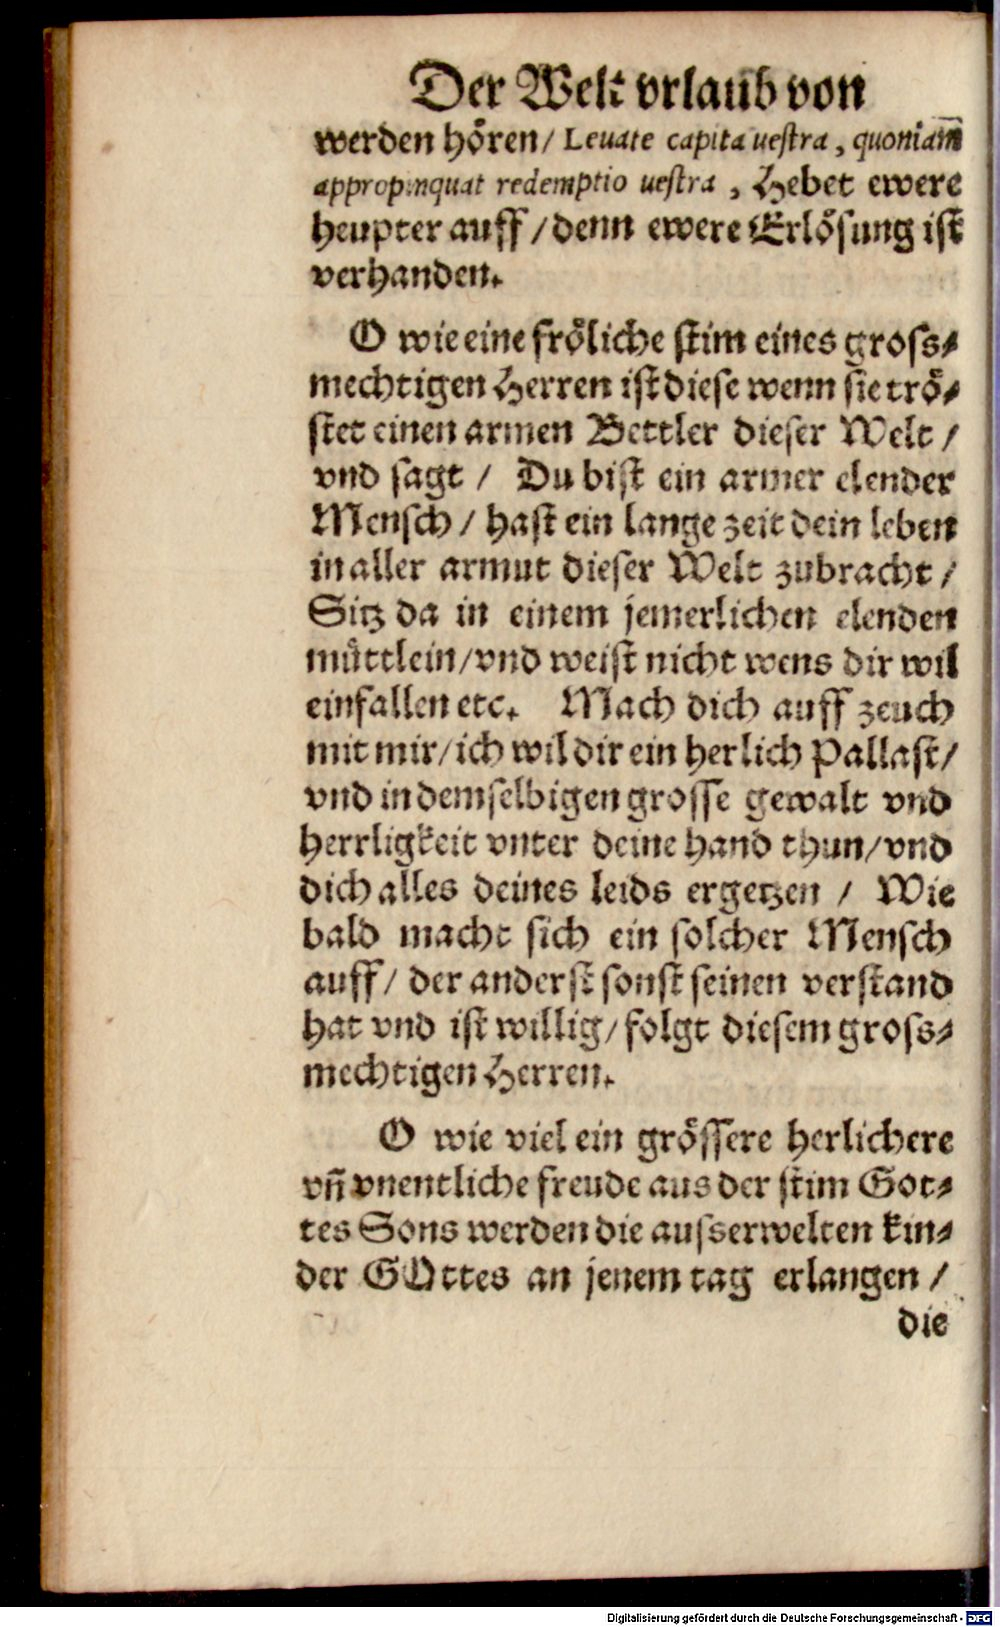 Der Welt vrlaub von
werden hoͤren/ Leuate capita uestra, quoniam̄
appropinquat redemptio uestra, Hebet ewere
heupter auff/ denn ewere Erloͤsung ist
verhanden.
O wie eine froͤliche stim eines gross⸗
mechtigen Herren ist diese wenn sie troͤ⸗
stet einen armen Bettler dieser Welt/
vnd sagt/ Du bist ein armer elender
Mensch/ hast ein lange zeit dein leben
in aller armut dieser Welt zubracht/
Sitz da in einem jemerlichen elenden
muͤttlein/ vnd weist nicht wens dir wil
einfallen etc. Mach dich auff zeuch
mit mir/ ich wil dir ein herlich Pallast/
vnd in demselbigen grosse gewalt vnd
herrligkeit vnter deine hand thun/ vnd
dich alles deines leids ergetzen/ Wie
bald macht sich ein solcher Mensch
auff/ der anderst sonst seinen verstand
hat vnd ist willig/ folgt diesem gross⸗
mechtigen Herren.
O wie viel ein groͤssere herlichere
vn̄ vnentliche freude aus der stim Got⸗
tes Sons werden die ausserwelten kin⸗
der GOttes an jenem tag erlangen/
die
Digitalisierung gefördert durch die Deutsche Forschungsgemeinschaft - DFG